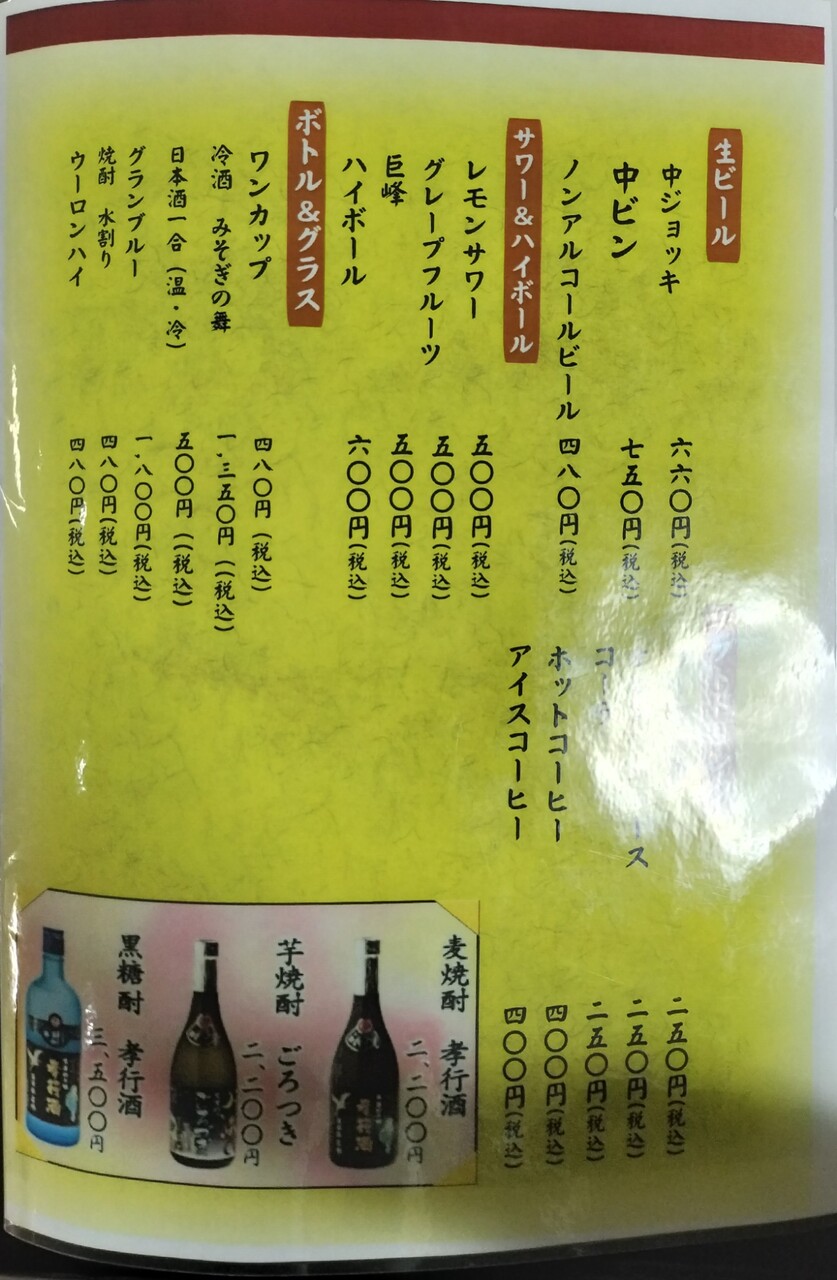 生ビール
中ジョッキ 六六〇円(税込)
中ビン 七五〇円(税込)
ノンアルコールビール 四八〇円(税込)
サワー&ハイボール
レモンサワー 五〇〇円(税込)
グレープフルーツ 五〇〇円(税込)
巨峰 五〇〇円(税込)
ハイボール 六〇〇円(税込)
ボトル&グラス
ワンカップ 四八〇円(税込)
冷酒 みそぎの舞 一、三五〇円((税込)
日本酒一合(温・冷) 五〇〇円((税込)
グランブルー 一、八〇〇円(税込)
焼酎 水割り 四八〇円(税込)
ウーロンハイ 四八〇円(税込)
二五〇円(税込)
ス 二五〇円(税込)
コーラ 二五〇円(税込)
ホットコーヒー 四〇〇円(税込)
アイスコーヒー 四〇〇円(税込)
麦焼酎 孝行酒
二、二〇〇円
芋焼酎 ごろつき
二、二〇〇円
黒糖酎 孝行酒
三、五〇〇円